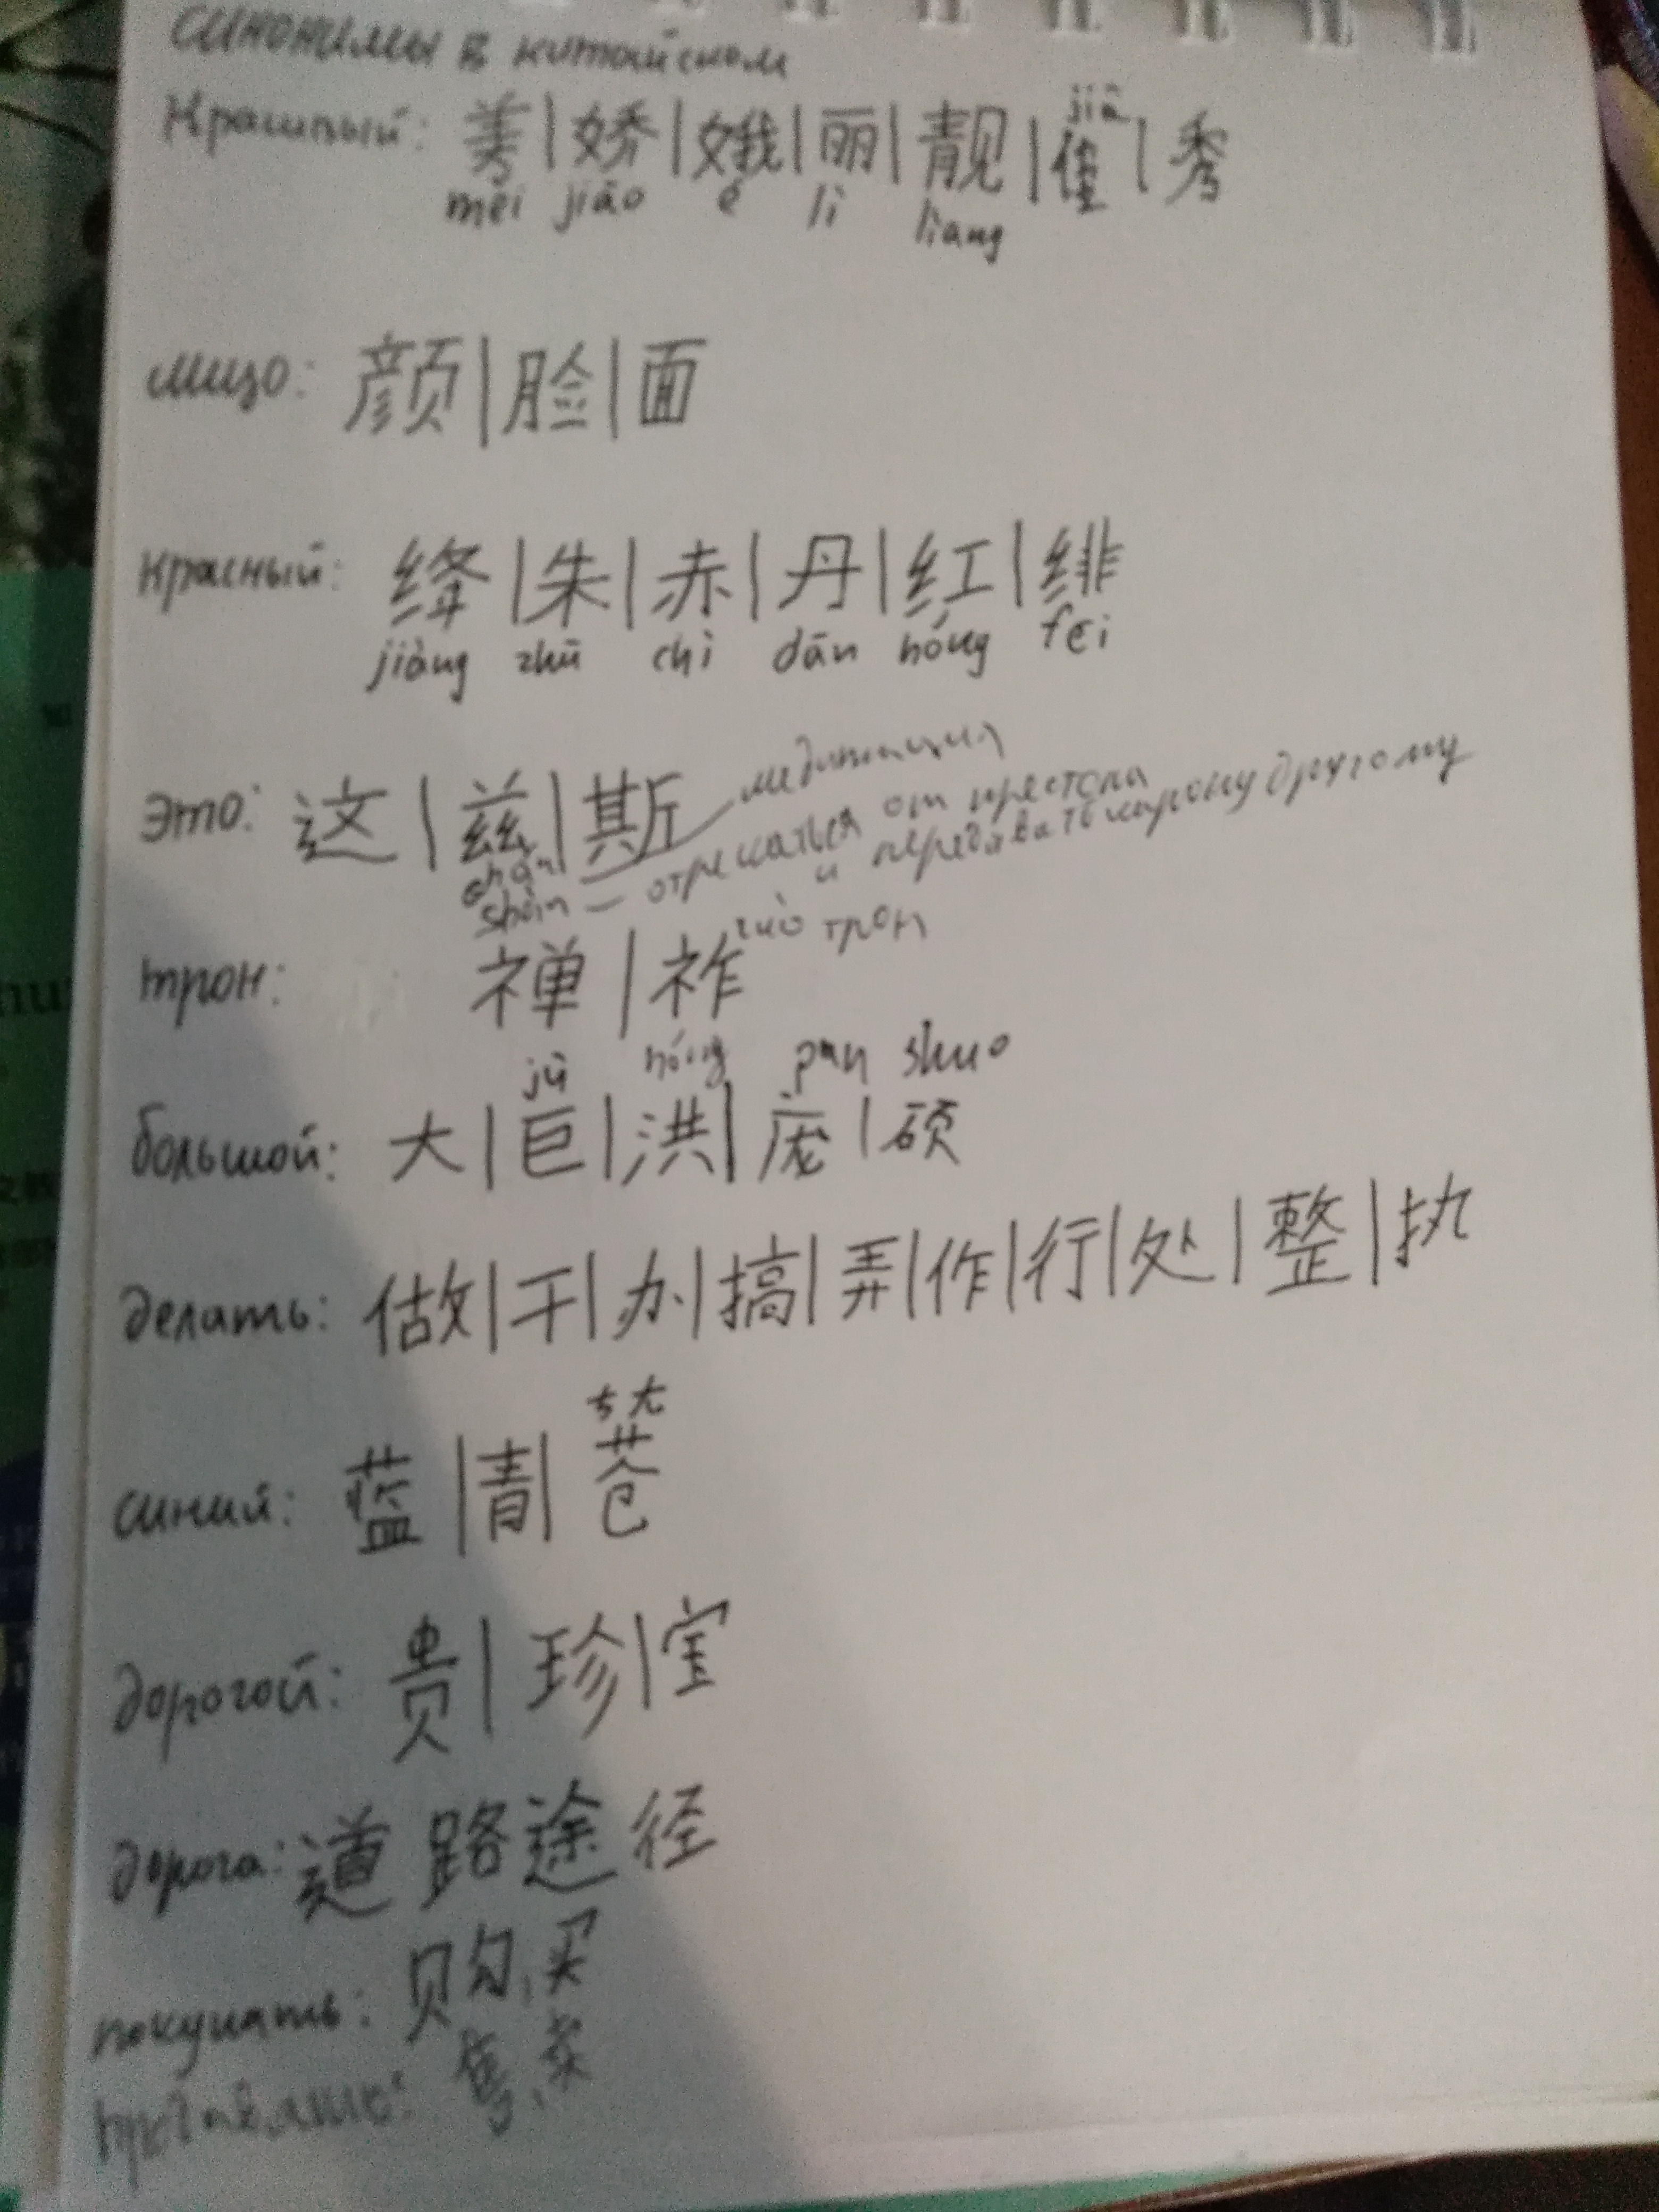 синонимы в китайском
Красивый: 美 | 娇 | 娥 | 丽 | 靓 | 佳 | 秀
měi jiāo é lì liang jiā
лицо: 颜 | 脸 | 面
красный: 绛 | 朱 | 赤 | 丹 | 红 | 绯
jiàng zhū chì dān hóng fēi
это: 这 | 兹 | 斯
chán медитация
shàn — отрекаться от престола и передавать корону другому
zuò трон
трон: 禅 | 祚
jù hóng pan shuo
большой: 大 | 巨 | 洪 | 庞 | 硕
делать: 做 | 干 | 办 | 搞 | 弄 | 作 | 行 | 处 | 整 | 执
ㄘㄤ
синий: 蓝 | 青 | 苍
дорогой: 贵 | 珍 | 宝
дорога: 道 路 途 径
покупать: 购, 买
售, 卖